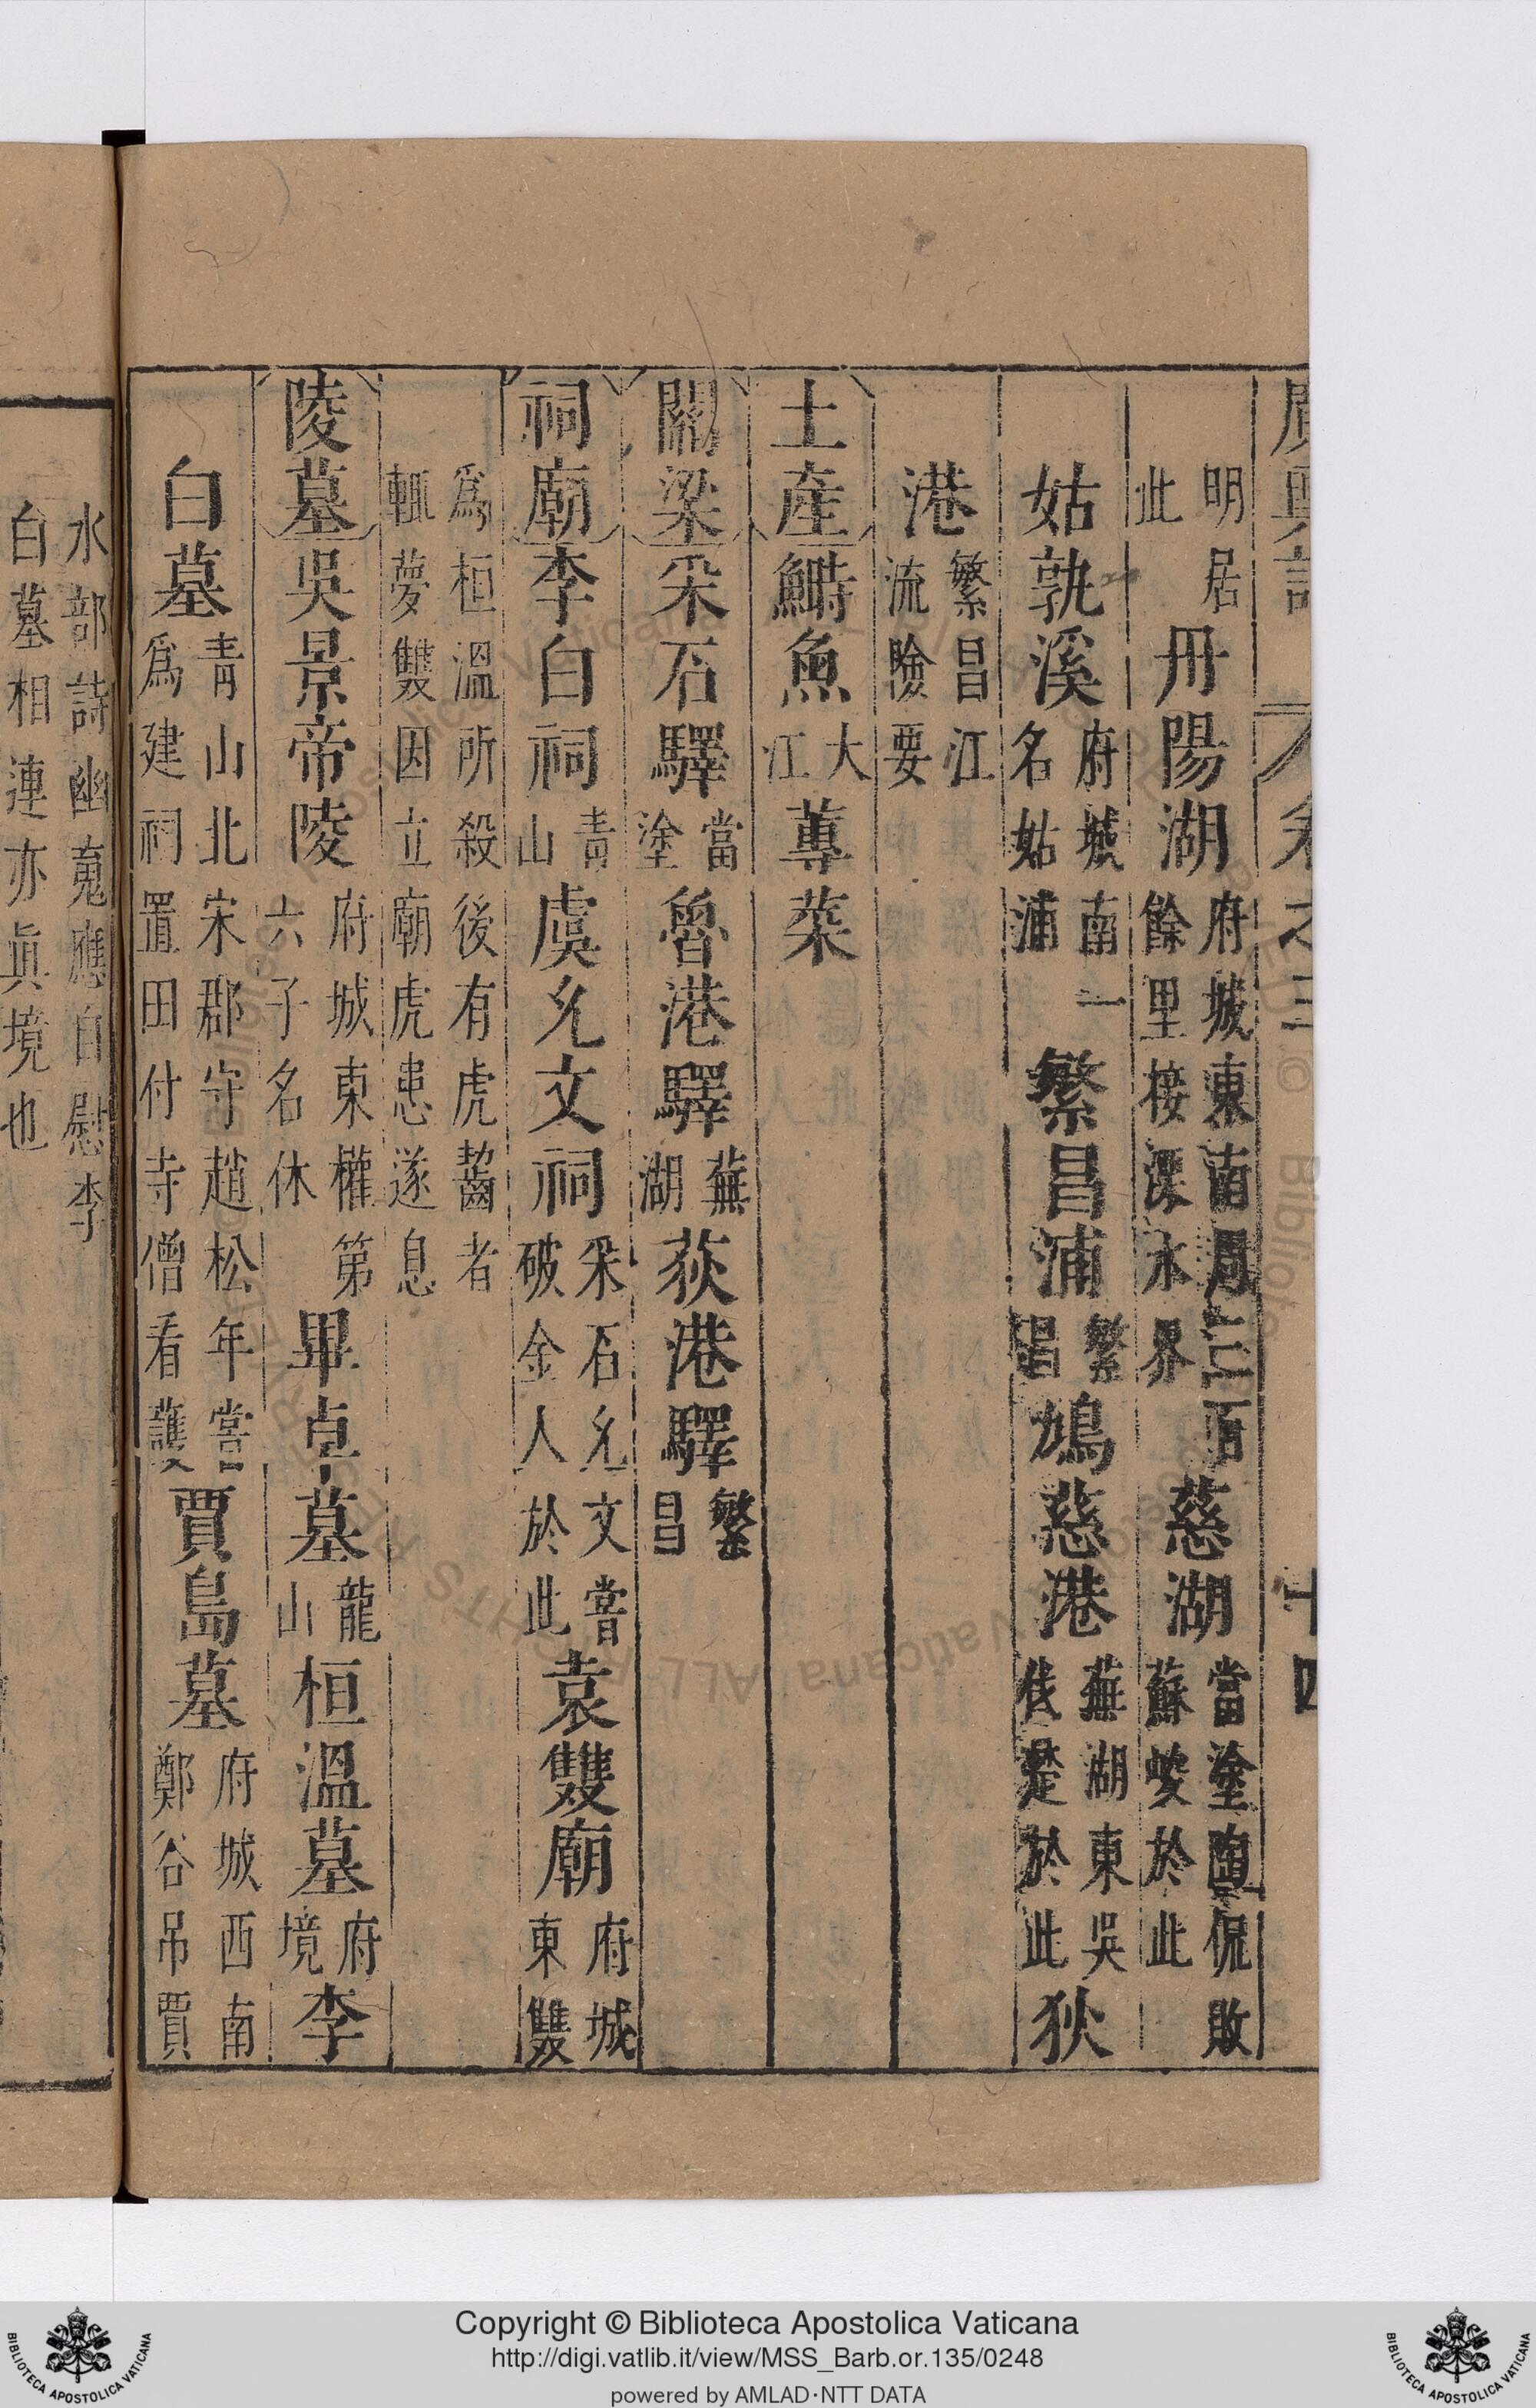 廣輿記 卷之三 十四
明居此丹陽湖府城東南周三百餘里接溧水界慈湖當塗陶侃敗蘇峻於此
姑孰溪府城南一名姑浦繁昌浦繁昌鳩慈港蕪湖東吳伐楚於此狄
港繁昌江流險要
土產鰣魚大江蓴菜
關梁采石驛當塗魯港驛蕪湖荻港驛繁昌
祠廟李白祠青山虞允文祠采石允文嘗破金人於此袁雙廟府城東雙
爲桓溫所殺後有虎齧者輒夢雙因立廟虎患遂息
陵墓吳景帝陵府城東權第六子名休畢卓墓龍山桓溫墓府境李
白墓青山北宋郡守趙松年嘗爲建祠置田付寺僧看護賈島墓府城西南鄭谷吊賈
水部詩幽蒐應自慰李白墓相連亦眞境也
Copyright © Biblioteca Apostolica Vaticana
http://digi.vatlib.it/view/MSS_Barb.or.135/0248
powered by AMLAD·NTT DATA
BIBLIOTECA APOSTOLICA VATICANA
BIBLIOTECA APOSTOLICA VATICANA